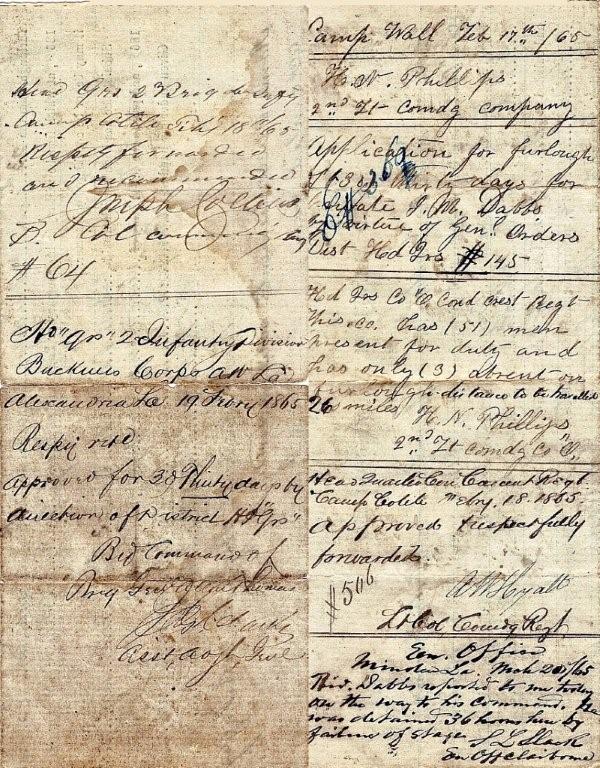 Camp Wall Feb 17th /65
H. N. Phillips
2nd Lt Comdg company
Application for furlough
of 30 thirty days for
Private J. M. Dabbs
by virtue of Genl Orders
Dist Hd Qrs # 145
Hd Qrs Co "C" Cond Crest Regt
This co. has (51) men
present for duty and
has only (3) absent on
furlough distance to be travelled
26 miles
H. N. Phillips
2nd Lt comdg Co C,
Head Quarters Con Crescent Regt
Camp 18. 1865
Approved & respectfully
forwarded.
#506
Hyatt
Lt Col Comdg Regt
En. Office
Minden La, Mch 20/65
Priv. Dabbs reported to me today
on the way to his command. He
was detained 36 hours here by
failure of stage
Black
En Off Claiborne
Head Qrs 2 Brig
Camp 18 /65
Respy forwarded
and recommended
Joseph Collins
Col commanding Brig
# 64
Hd Qrs 2 Infantry Division
Corps
Alexandria La 19 Febry 1865
Respy retd
Approved for 30 Thirty days by
direction of District Hd Qrs
By Command of
Brig
Asst, Adjt, Genl